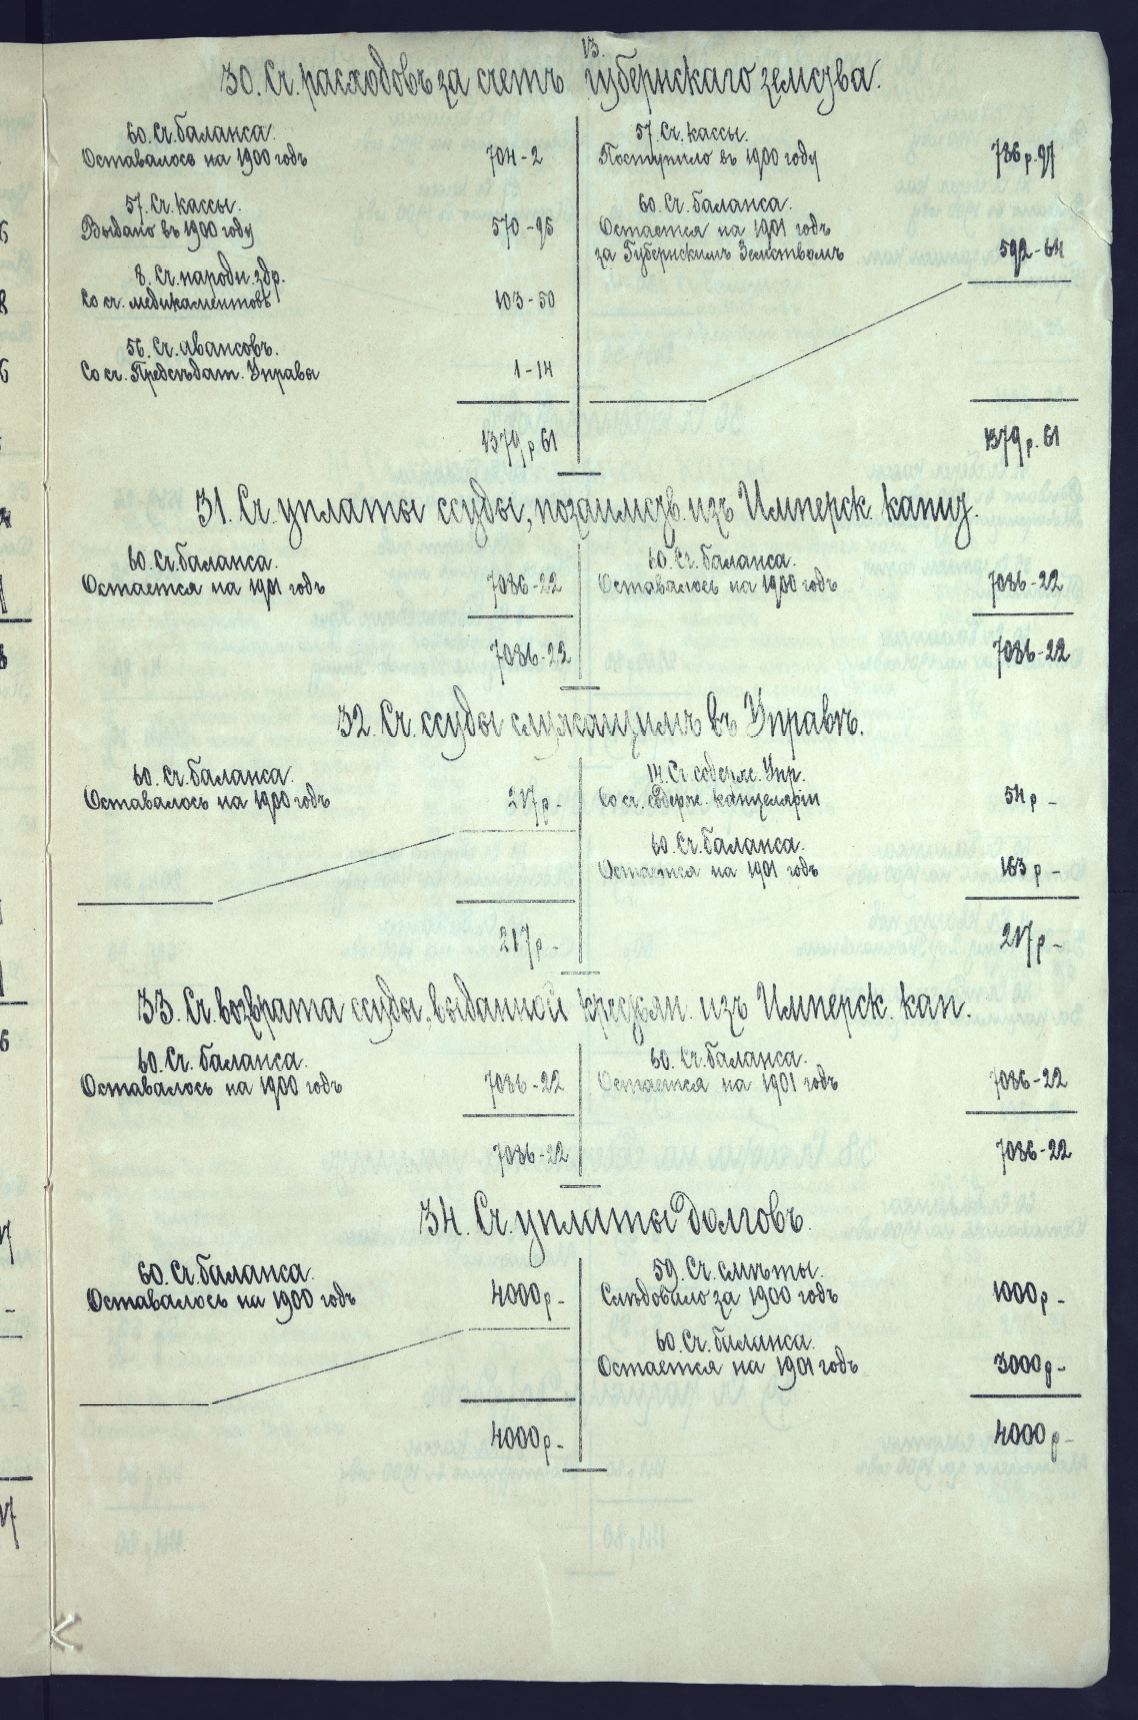 13.
30. Сч. расходовъ за счетъ губернскаго земства.
60. Сч. баланса.
Оставалось на 1900 годъ 704-2
57. Сч. кассы.
Выдано въ 1900 году 570-95
8. Сч. народн. здр.
Со сч. медикаментовъ 103-50
56. Сч. авансовъ.
Со сч. Предсѣдат. Управы 1-14
1379 р 61
57. Сч. кассы.
Поступило въ 1900 году 786 р. 97
60. Сч. баланса.
Остается на 1901 годъ
за Губернскимъ Земствомъ 592-64
1379 р. 61
31. Сч. уплаты ссуды, позаимств. изъ Имперск. капит.
60. Сч. баланса.
Остается на 1901 годъ 7086-22
7086-22
60. Сч. баланса.
Оставалось на 1900 годъ 7086-22
7086-22
32. Сч. ссуды служащимъ въ Управѣ.
60. Сч. баланса.
Оставалось на 1900 годъ 217 р -
217 р -
14. Сч. содерж. Упр.
Со сч. содерж. канцеляріи 54 р -
60. Сч. баланса.
Остается на 1901 годъ 163 р -
217 р -
33. Сч. возврата ссуды, выданной крестьян. изъ Имперск. кап.
60. Сч. баланса.
Оставалось на 1900 годъ 7086-22
7086-22
60. Сч. баланса.
Остается на 1901 годъ 7086-22
7086-22
34. Сч. уплаты долговъ.
60. Сч. баланса.
Оставалось на 1900 годъ 4000 р -
4000 р -
59. Сч. смѣты.
Слѣдовало за 1900 годъ 1000 р -
60. Сч. баланса.
Остается на 1901 годъ 3000 р -
4000 р -